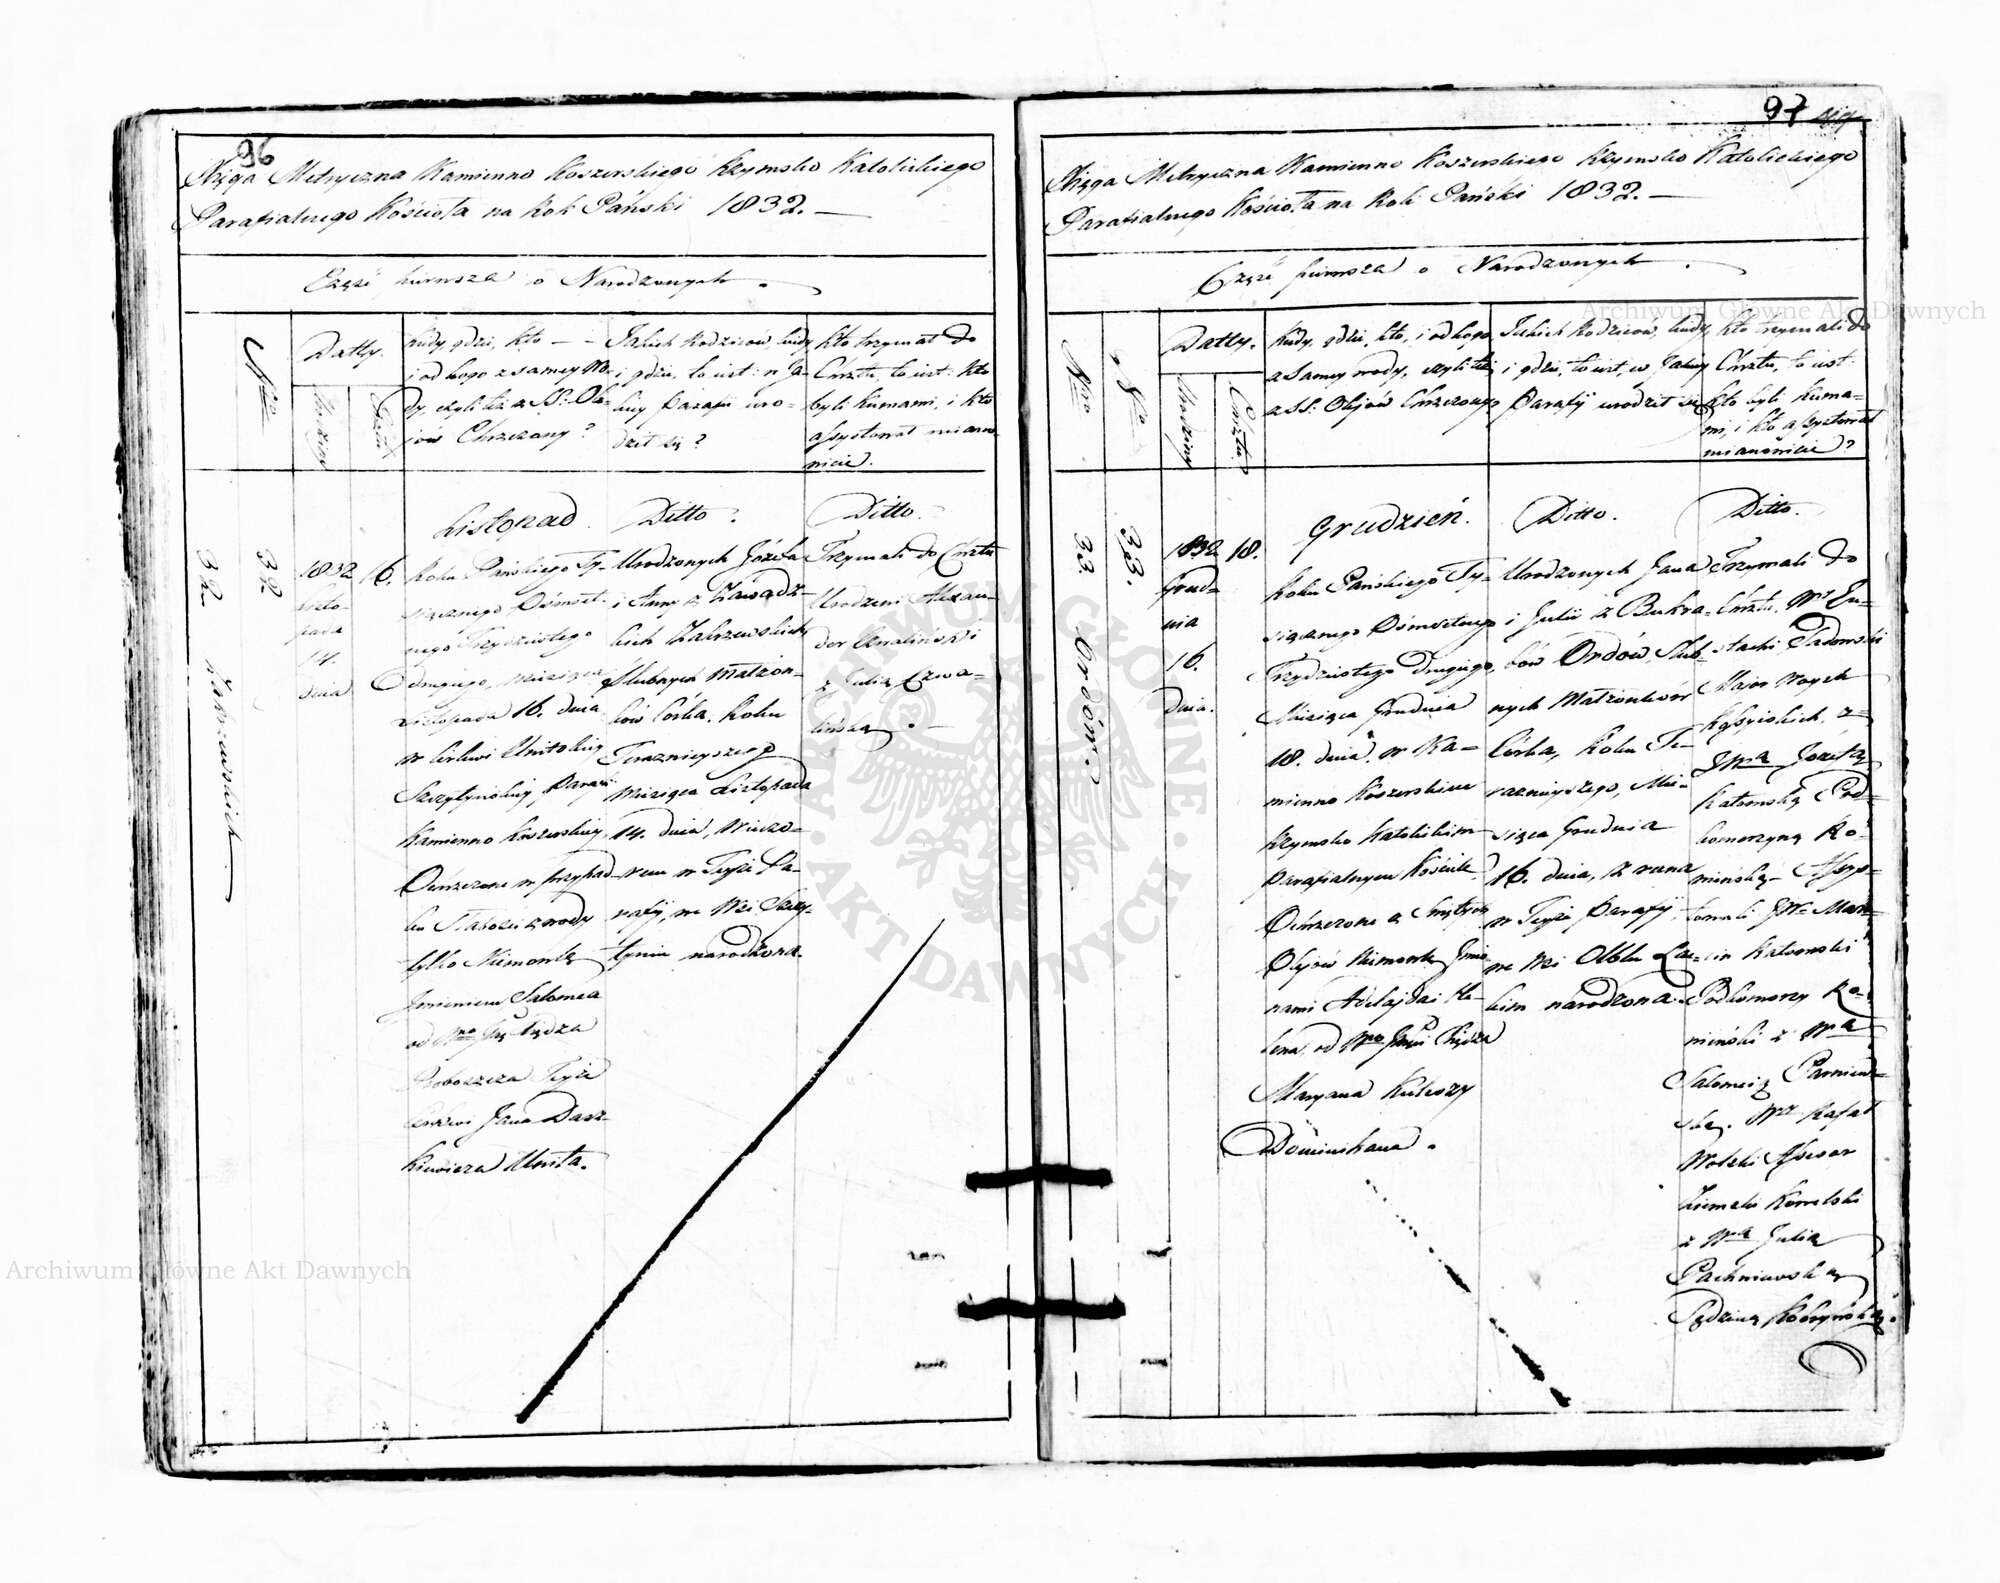 96
Xięga Metryczna Kamienno Koszerskiego Rzymsko Katolickiego
Parafialnego Kościoła na Rok Pański 1832. —
Część pierwsza o Narodzonych.
Nro
Datty.
Urodziny
Chrztu
Kiedy, gdzie, kto —
i od kogo z samey wo-
dy, czyli też z SS: Ole-
jów Chrzczony?
Jakich Rodziców kiedy
i gdzie, to iest: w Ja-
kiey Parafii uro-
dził się?
Kto trzymał do
Chrztu, to iest: kto
byli Kumami, i kto
assystował miano-
wicie.
32
Zakrzewskich
32
1832
Listo-
pada
14.
dnia
16.
Listopad.
Roku Pańskiego Ty-
siącznego Ośmset-
nego Trzydziestego
drugiego, miesiąca
Listopada 16. dnia
w Cerkwi Unitskiey
Szczytyńskiey Parafii
Kamienno Koszerskiey
Ochrzczona w przypad-
ku słabości z wody
tylko Niemowlę
Jmieniem Salomea
od Xiędza
Proboszcza Teyże
Cerkwi Jana Dasz-
kiewicza Unita.
Ditto.
Urodzonych Józefa
i Anny z Zawadz-
kich Zakrzewskich
Slubnych Małżon-
ków Córka, Roku
Teraznieyszego
Miesiąca Listopada
14. dnia, Wieczo-
rem w Teyże Pa-
rafij, we Wsi Szczy-
tyniu narodzona.
Ditto.
Trzymali do Chrztu
Urodzeni Alexan-
der
z Julią Czwa-
lińską. —
97
Xięga Metryczna Kamienno Koszerskiego Rzymsko Katolickiego
Parafialnego Kościoła na Rok Pański 1832. —
Część pierwsza o Narodzonych.
Nro
Nro
Datty.
Urodziny
Chrztu
Kiedy, gdzie, kto, i od kogo
z Samey wody, czyli też
z SS: Olejów Chrzczony?
Jakich Rodziców, kiedy,
i gdzie, to iest, w Jakiey
Parafij urodził się
Kto trzymali do
Chrztu, to iest:
kto byli Kuma-
mi, i kto assystował
mianowicie?
33.
Ordów.
33.
1832
Grud-
nia
16.
dnia.
18.
Grudzień.
Roku Pańskiego Ty-
siącznego Ośmsetnego
Trzydziestego drugiego,
Miesiąca Grudnia
18. dnia. w Ka-
mienno Koszerskim
Rzymsko Katolickim
Parafialnym Kościele
Ochrzczona z Swiętych
Olejów Niemowlę Jmio-
nami Adelajda i He-
lena, od Xiędza
Maryana Kuleszy
Dominikana.
Ditto.
Urodzonych Jana
i Julii z Bukra-
bów Ordów, Slub-
nych Małżonków
Córka, Roku Te-
raznieyszego, Mie-
siąca Grudnia
16. dnia, z rana
w Teyże Parafij
we Wsi Olble Lac-
kim narodzona.
Ditto.
Trzymali do
Chrztu. Wy Eu-
stachi Sadowski
Major Woysk
Rossyiskich, z
JWna Józefą
Ratomską Pod-
komorzyną Ko-
mińską. Assys-
towali JWy Mar-
cin Ratomski
Podkomorzy Ko-
miński z Wna
Salomeią
Wny Rafał
Wolski Assesor
Ziemski Kowelski
z Wną Julią
Pachniewską
Sędziną Kobryńską.